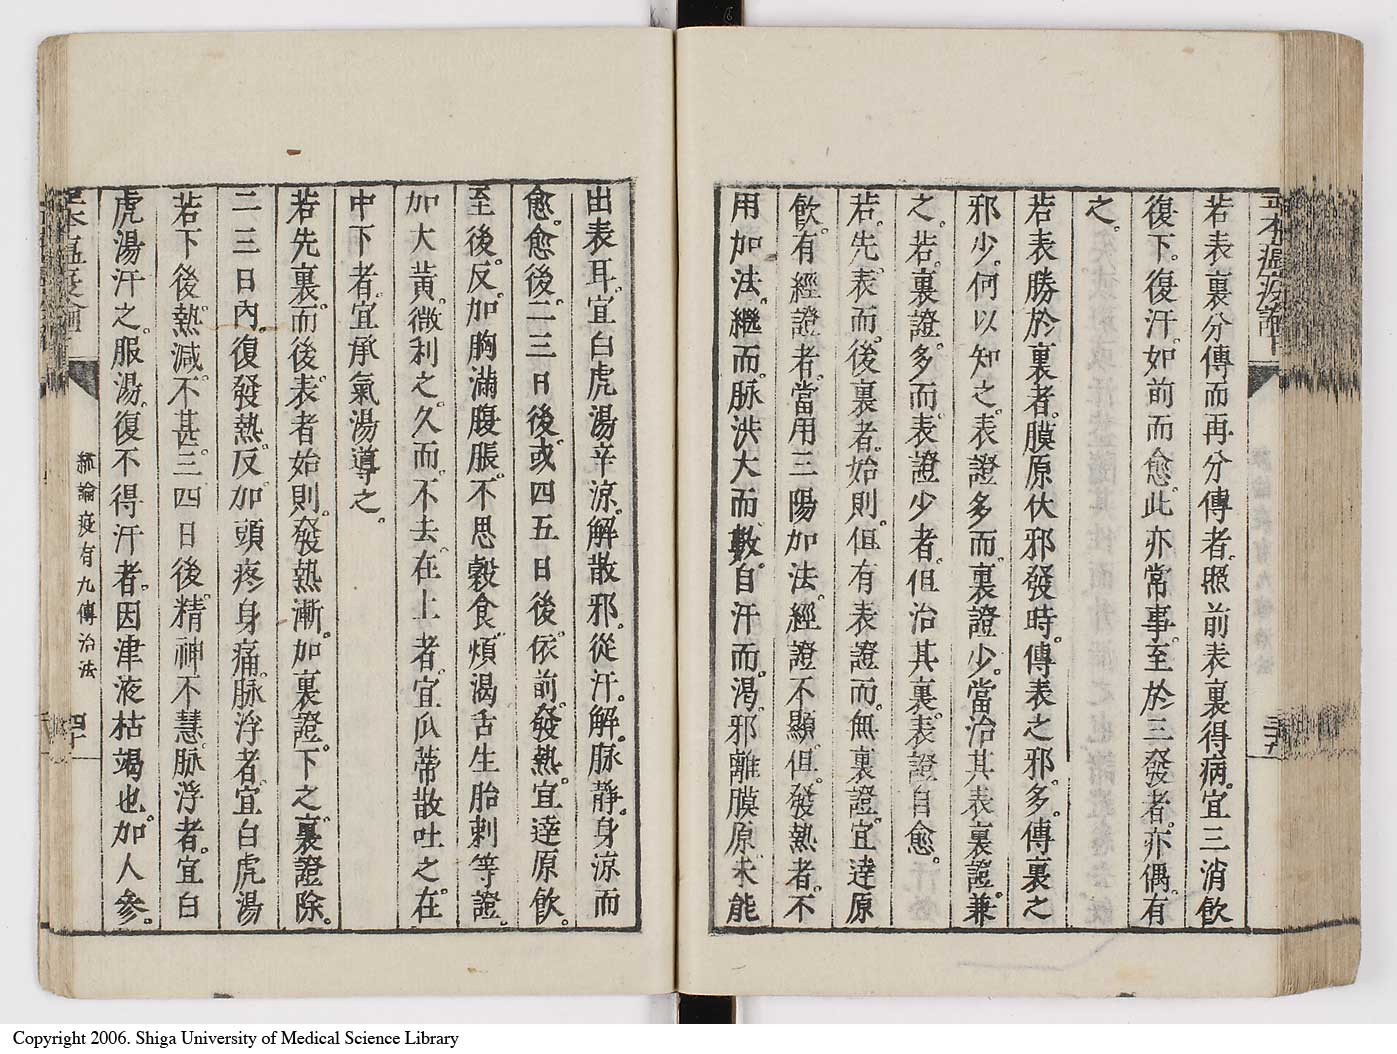 若表裏分傳而再分傳者。照前表裏得病。宜三消飲
復下。復汗。如前而愈。此亦常事。至於三發者。亦偶有
之。
若表勝於裏者。膜原伏邪發時。傳表之邪多。傳裏之
邪少。何以知之。表證多而裏證少。當治其表。裏證兼
之。若裏證多而表證少者。但治其裏。表證自愈。
若先表而後裏者。始則但有表證而無裏證。宜達原
飲。有經證者。當用三陽加法。經證不顯。但發熱者。不
用加法。繼而脉洪大而數。自汗而渴。邪離膜原。未能
出表耳。宜白虎湯辛涼解散。邪從汗解。脉靜。身涼而
愈。愈後二三日後。或四五日後。依前發熱。宜達原飲。
至後反加胸滿腹脹。不思穀食。煩渴舌生胎刺等證。
加大黃。微利之。久而不去。在上者。宜瓜蒂散吐之。在
中下者。宜承氣湯導之。
若先裏而後表者。始則發熱。漸加裏證。下之裏證除。
二三日內。復發熱。反加頭疼身痛。脉浮者。宜白虎湯
若下後。熱減不甚。三四日後。精神不慧。脉浮者。宜白
虎湯汗之。服湯。復不得汗者。因津液枯竭也。加人參。
統論疫有九傳治法
四十